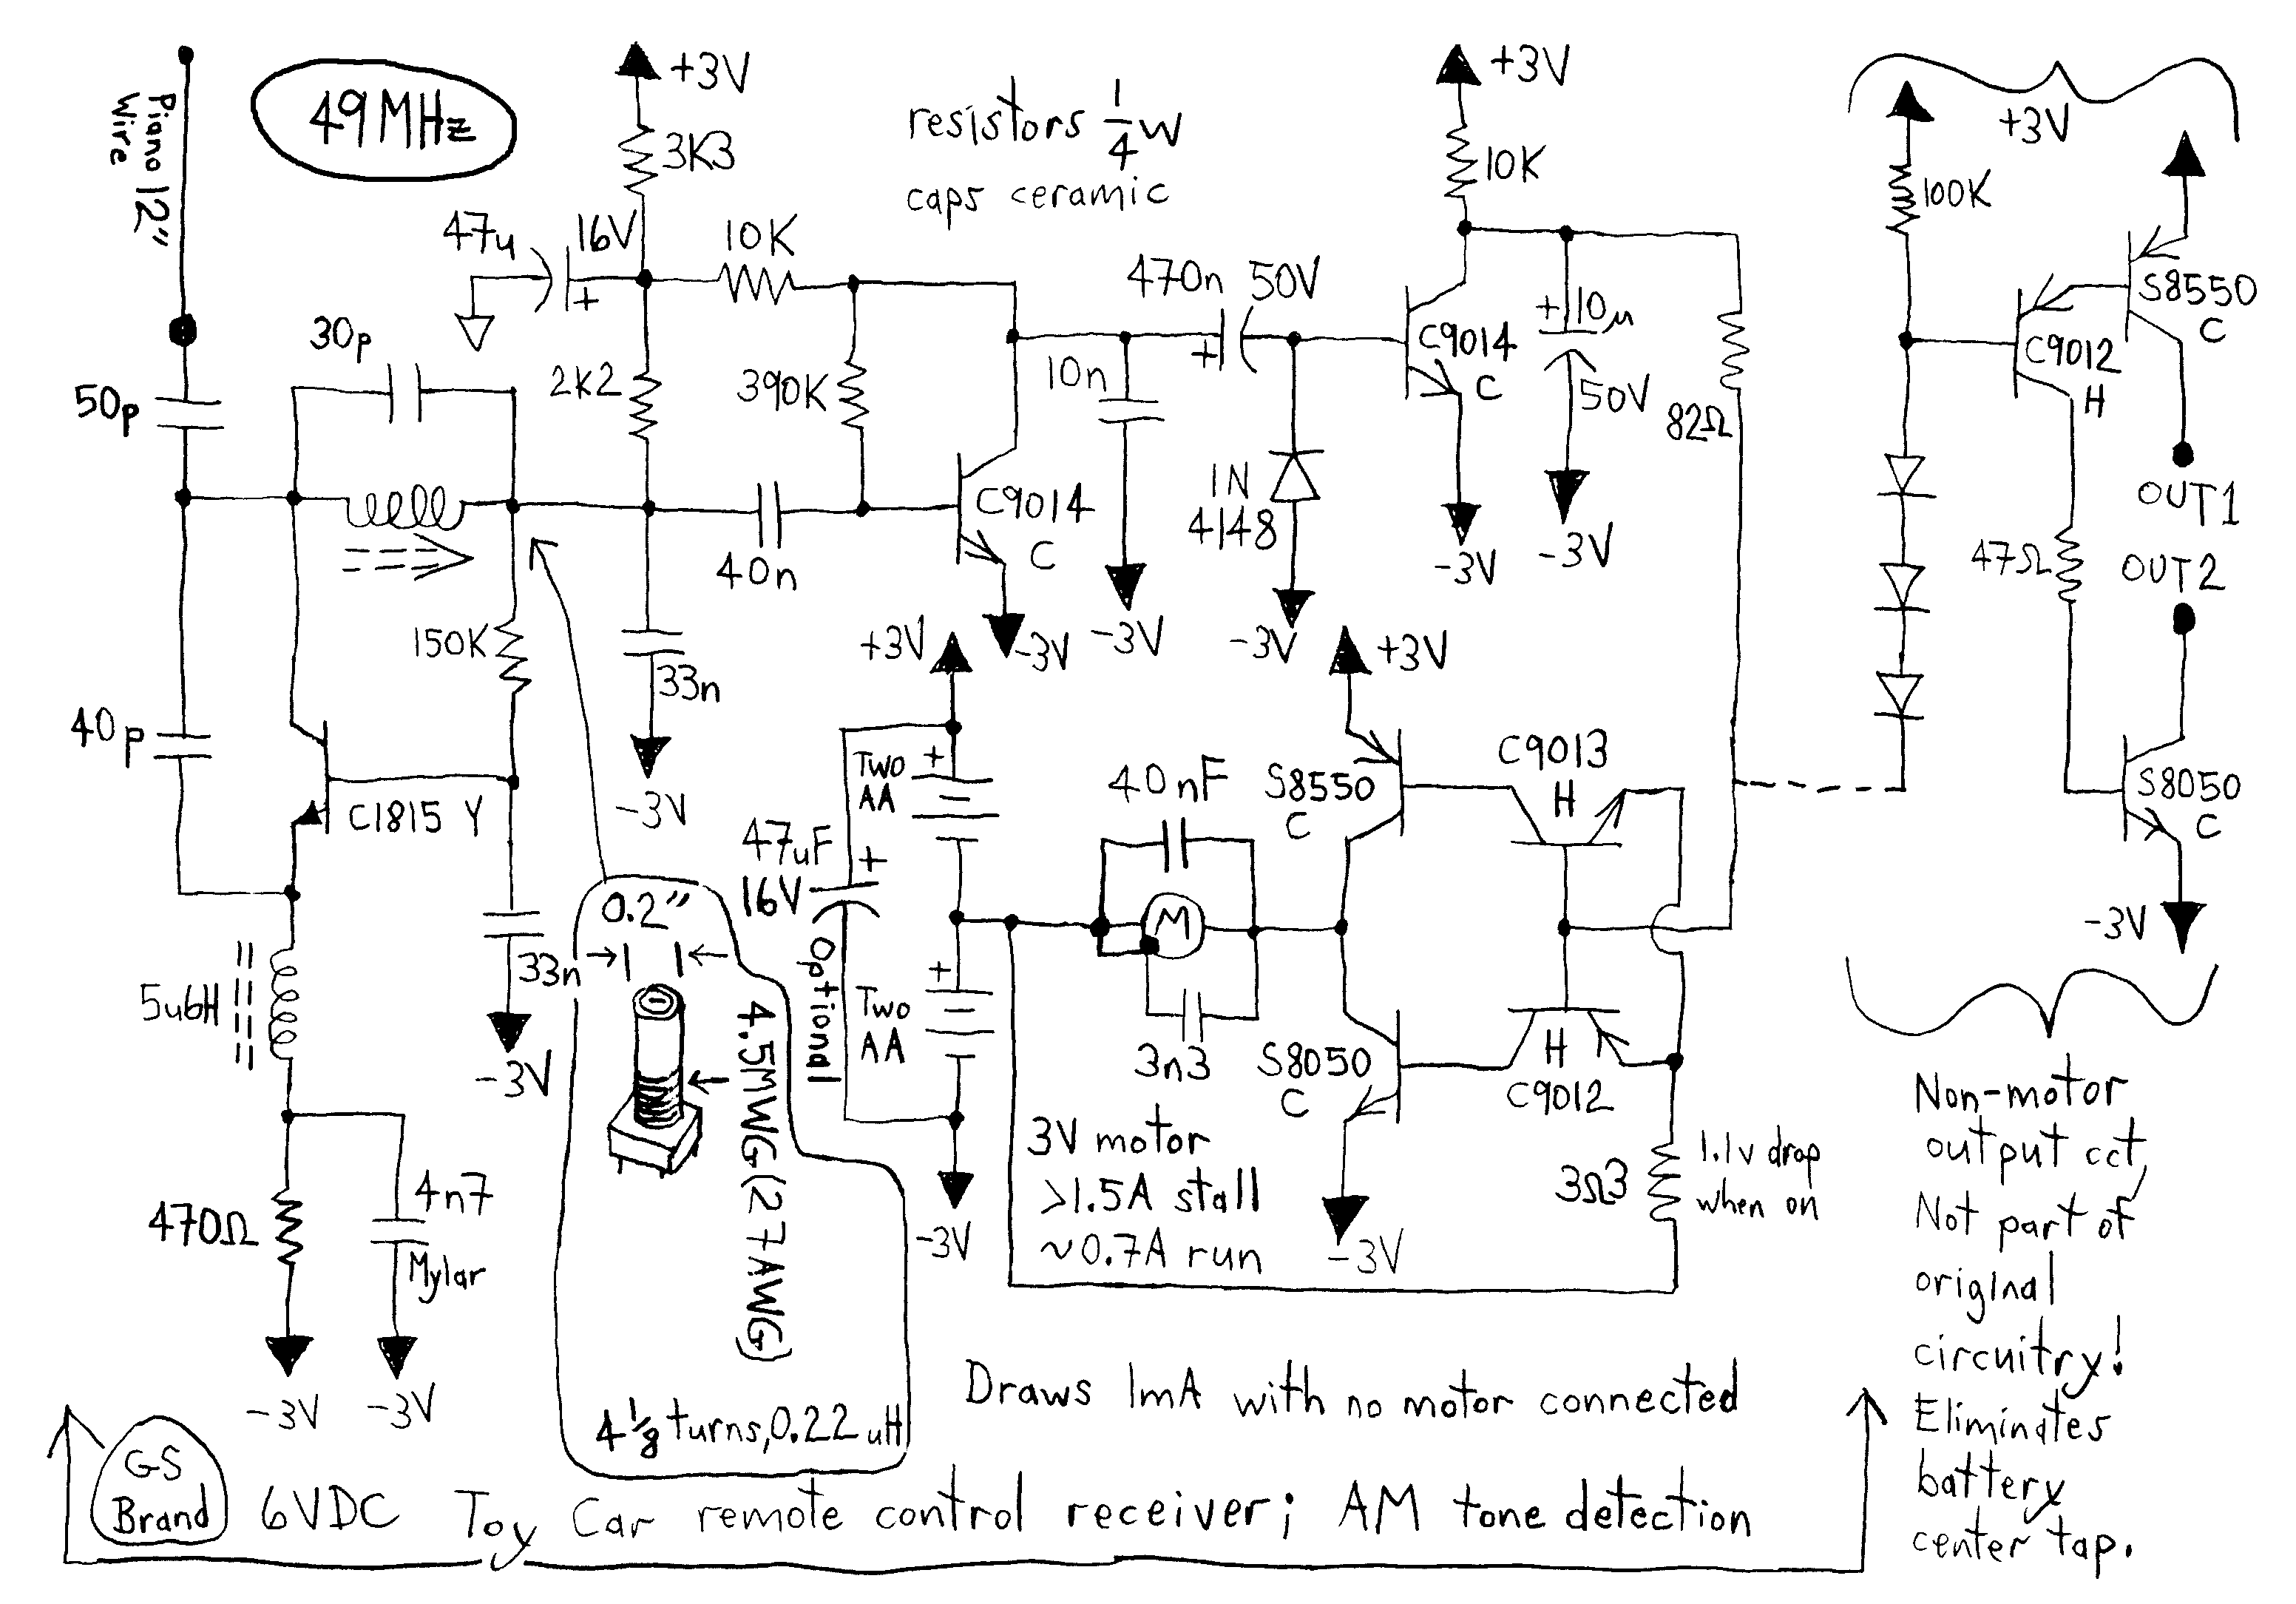 49MHz
Piano 12"
Wire
+3V
3K3
resistors 1/4 W
caps ceramic
+3V
10K
+3V
100K
S8550
C
47u
16V
+
10K
30p
50p
2K2
390K
10n
470n 50V
+
C9014
C
+10µ
50V
82Ω
C9012
H
C9014
C
40n
1N
4148
47Ω
OUT1
OUT2
150K
33n
-3V
-3V
-3V
-3V
-3V
-3V
40p
C1815 Y
33n
-3V
5u6H
470Ω
4n7
Mylar
-3V
-3V
0.2"
4.5MWG(27AWG)
4 1/8 turns, 0.22 uH
+3V
Two
AA
+
47uF
16V
+
Optional
Two
AA
+
-3V
40nF
M
3n3
3V motor
>1.5A stall
~0.7A run
+3V
S8550
C
C9013
H
S8050
C
H
C9012
-3V
3Ω3
1.1v drop
when on
S8050
C
-3V
Non-motor
output cct,
Not part of
original
circuitry!
Eliminates
battery
center tap.
Draws 1mA with no motor connected
GS
Brand
6VDC Toy Car remote control receiver; AM tone detection